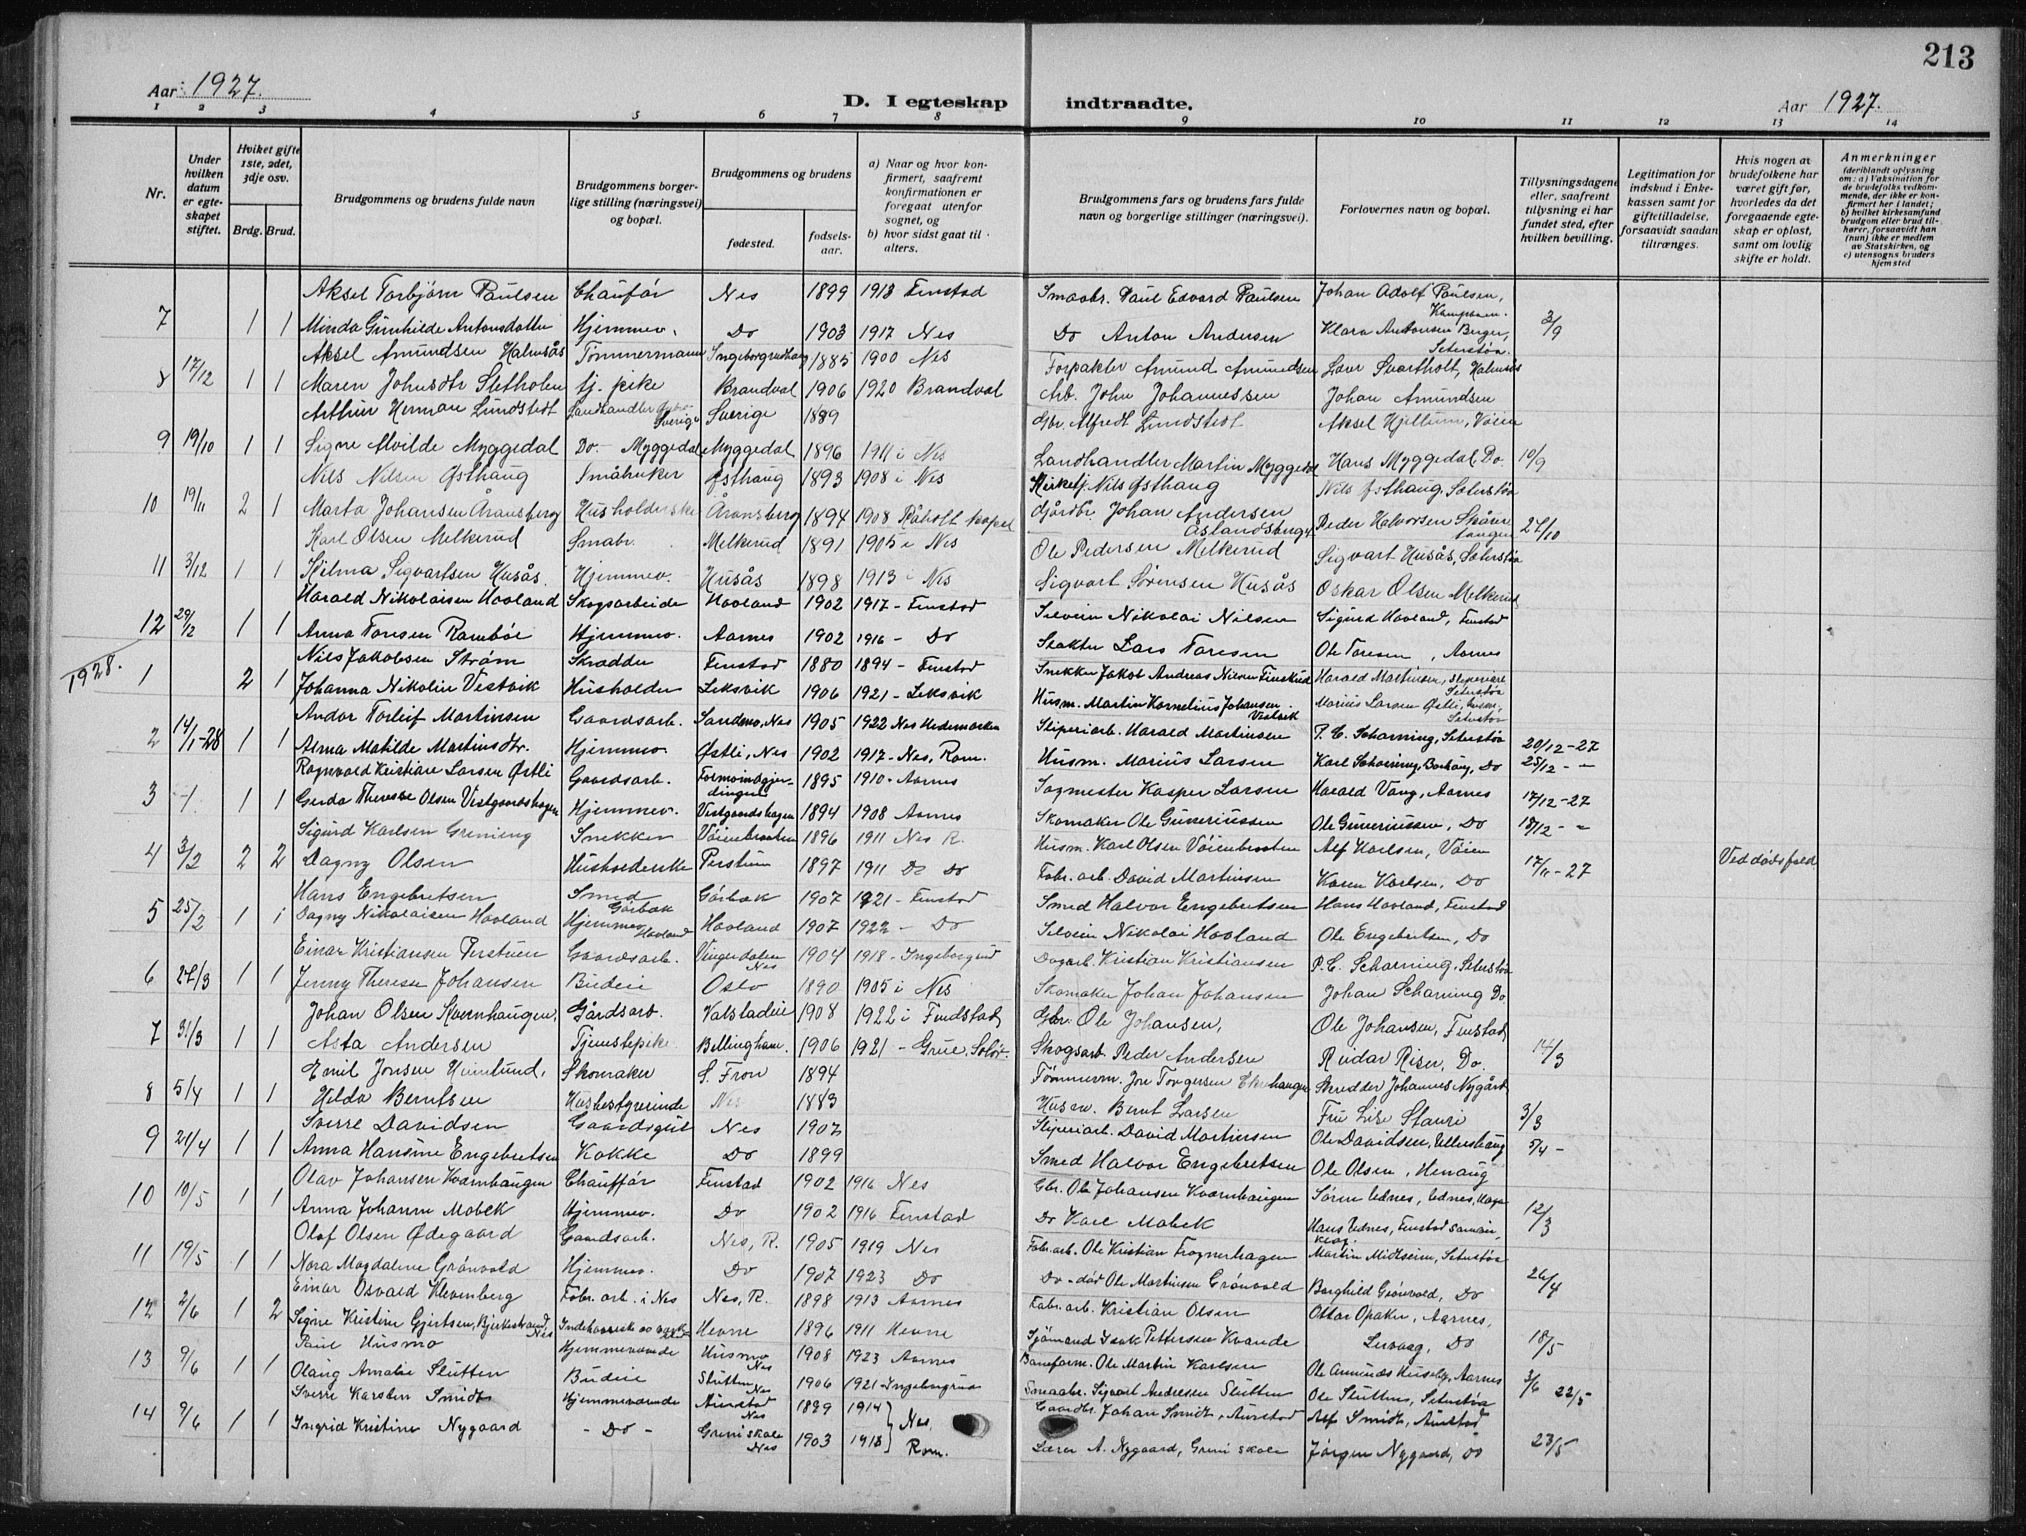 213
Aar 1927.
D. I egteskap indtraadte.
Aar 1927.
1 2 3 4 5 6 7 8 9 10 11 12 13 14
Nr.
Under hvilken datum er egteskapet stiftet.
Hviket gifte 1ste, 2det, 3dje osv.
Brdg. Brud.
Brudgommens og brudens fulde navn
Brudgommens borgerlige stilling (næringsvei) og bopæl.
Brudgommens og brudens
fødested.
fødselsaar.
a) Naar og hvor konfirmert, saafremt konfirmationen er foregaat utenfor sognet, og
b) hvor sidst gaat til alters.
Brudgommens fars og brudens fars fulde navn og borgerlige stillinger (næringsvei).
Forlovernes navn og bopæl.
Tillysningsdagene eller, saafremt tillysning ei har fundet sted, efter hvilken bevilling.
Legitimation for indskud i Enkekassen samt for giftetilladelse, forsaavidt saadan tiltrænges.
Hvis nogen av brudefolkene har været gift før, hvorledes da det foregaaende egteskap er opløst, samt om lovlig skifte er holdt.
Anmerkninger (deriblandt oplysning om: a) Vaksination for de brudefolks vedkommende, der ikke er konfirmert her i landet; b) hvilket kirkesamfund brudgom eller brud tilhører, forsaavidt han (hun) ikke er medlem av Statskirken, og c) utensogns bruders hjemsted
Aksel Torbjørn Paulsen Chaufør Nes 1899 1913 Fenstad Smaabr. Paul Edvard Paulsen Johan Adolf Paulsen,
7 1 1 Minda Gunhilde Antonsdatter Hjemmev. Do 1903 1917 Nes Do Anton Andersen Klara Antonsen Berger, Seterstøa. 3/9
Aksel Amundsen Halmsås Tømmermann 1885 1900 Nes Forpakter Amund Amundsen Svartholt, Halmsås
8 17/12 1 1 Maren Johnsdtr Sletholen tj. pike Brandval 1906 1920 Brandval Arb. John Johannessen Johan Amundsen
Arthur Herman Lundstedt Landhandler Sverige Sverige 1889 Gbr. Alfredt Lundstedt Aksel Hjellum, Vøien
9 19/10 1 1 Signe Alvilde Myggedal Do. Myggedal Myggedal 1896 1911 i Nes Landhandler Martin Myggedal Hans Myggedal Do. 10/9
Nils Nilsen Østhaug Småbruker Østhaug 1893 1908 i Nes Kirketj. Nils Østhaug Nils Østhaug, Seterstøa
10 19/11 2 1 Marta Johansen Åransberg Husholderske Åransberg 1894 1908 Råholt kapel Gårdbr. Johan Andersen Åslandsberget Peder Halvorsen 24/10
Karl Olsen Melkerud Smabr. Melkerud 1891 1905 i Nes Ole Pedersen Melkerud Sigvart Husås, Seterstøa
11 3/12 1 1 Hilma Sigvartsen Husås. Hjemmev. Husås 1898 1913 i Nes Sigvart Sørensen Husås Oskar Olsen Melkerud
Harald Nikolaisen Hovland Skogsarbeide Hovland 1902 1917 - Fenstad Nikolai Nilsen Sigurd Hovland, Fenstad
12 29/12 1 1 Anna Toresen Rambøl Hjemmev. Aarnes 1902 1916 - Do Lars Toresen Ole Toresen, Aarnes
1928.
Nils Jakobsen Strøm Skrædder Fenstad 1880 1894 - Fenstad Snekker Jakob Andreas Nilsen Harald Martinsen, Sliperiarb. Seterstøa
1 2 1 Johanna Nikoline Vestvik Husholder Leksvik 1906 1921 - Leksvik Husm. Martin Kornelius Johansen Vestvik Marius Larsen Østli, Seterstøa
Andor Torleif Martinsen Gaardsarb. Sandmo, Nes 1905 1922 Nes Hedemarken Sliperiarb. Harald Martinsen P. C. Scharning, Seterstøa
2 14/1-28 1 1 Alma Matilde Martinsdtr. Hjemmev. Østli, Nes 1902 1917 - Nes, Rom. Husm. Marius Larsen Karl Scharning, Do 20/12-27 25/12 - "
Ragnvald Kristian Larsen Østli Gaardsarb. 1895 1910 - Aarnes Sagmester Kasper Larsen Harald Vang, Aarnes
3 1 1 Gerda Therese Olsen Vestgaardshagen Hjemmev. Vestgaardshagen 1894 1908 Aarnes Skomaker Ole Guneriussen Ole Guneriussen, Do 17/12-27 18/12 - "
Sigurd Karlsen Grening Snekker Vøienbraaten 1896 1911 Nes R. Husm. Karl Olsen Vøienbraaten Alf Karlsen, Vøien
4 3/2 2 2 Dagny Olsen Husholderske Perstuen 1897 1911 Do Do Fabr. arb. David Martinsen Karen Karlsen, Do 17/11-27 Ved dødsfald
Hans Engebretsen Smed Gårbak Gårbak 1907 1921 - Fenstad Smed Halvor Engebretsen Hans Hovland, Fenstad
5 25/2 1 1 Dagny Nikolaisen Hovland Hjemmev. Hovland Hovland 1907 1922 - Do Nikolai Hovland Ole Engebretsen, Do
Einar Kristiansen Perstuen Gaardsarb. Vingerdalen Nes 1904 1918 - Ingeborgrud Dagarb. Kristian Kristiansen P. C. Scharning, Seterstøa
6 24/3 1 1 Jenny Therese Johansen Budeie Oslo 1890 1905 i Nes Skomaker Johan Johansen Johan Scharning Do
Johan Olsen Kvernhaugen, Gårdsarb. Valstadeie 1908 1922 i Fendstad Gbr. Ole Johansen, Ole Johansen, Fenstad
7 31/3 1 1 Asta Andersen Tjenestepike Bellingham. 1906 1921 - Grue, Solør. Skogsarb. Peder Andersen Reidar Riser, Do. 14/3
Emil Jonsen Heimlund, Skomaker S. Fron 1894 Tømmerm. Jon Torgersen Skredder Johannes Nygård
8 5/4 1 1 Helda Berntsen Husbestyrerinde Nes 1883 Husm. Bernt Larsen Fru Lise Stauri 3/3
Sverre Davidsen Gaardsgut Nes 1907 Sliperiarb. David Martinsen Ole Davidsen, Ullershaug
9 21/4 1 1 Anna Hansine Engebretsen Kokke Do 1899 Smed Halvor Engebretsen Ole Olsen, Henaug 5/4 -
Olav Johansen Kvernhaugen Chauffør Fenstad 1902 1916 Nes Gbr. Ole Johansen Kvarnhaugen Søren Udnes, Udnes, Haga
10 10/5 1 1 Anna Johanne Mobek Hjemmev. Do 1902 1916 Fenstad Do Karl Mobek Hans Udnes, Fenstad 12/3
Olaf Olsen Ødegaard Gaardsarb. Nes, R. 1905 1919 Nes Fabr. arb. Ole Kristian Frognerhagen Martin Midtseim, Seterstøa
11 19/5 1 1 Nora Magdalene Grønvold Hjemmev. Do 1907 1923 Do Do - død Ole Martinsen Grønvold Borghild Grønvold, Do 26/4
Einar Osvald Klevenberg Fabr. arb. i Nes Nes, R. 1898 1913 Aarnes Fabr. arb. Kristian Olsen Ottar Opaker, Aarnes,
12 2/6 1 2 Signe Kristine Gjertsen, Bjerkestrand, Nes Hevne 1896 1911 Hevne Sjømand Isak Pettersen Kvande Do 18/5
Paul Husmo Hjemmeværende Husmo Nes 1908 1923 Aarnes Baneform. Ole Martin Karlsen Ole Amunds Huseby, Aarnes
13 9/6 1 1 Olaug Amalie Slutten Budeie Slutten Nes 1906 1921 Ingeborgrud Smaabr. Sigvart Andersen Slutten Ole Sluttens, Seterstøa 3/6 22/5
Sverre Karsten Smidt Hjemmeværende Aunstad Nes 1899 1914 Gaardbr. Johan Smidt, Aunstad Alf Smidt, Aunstad
14 9/6 1 1 Ingrid Kristine Nygaard - Do - Greni skole Nes 1903 1918 Nes, Rom. Lærer A. Nygaard, Greni skole Jørgen Nygaard, Do 23/5